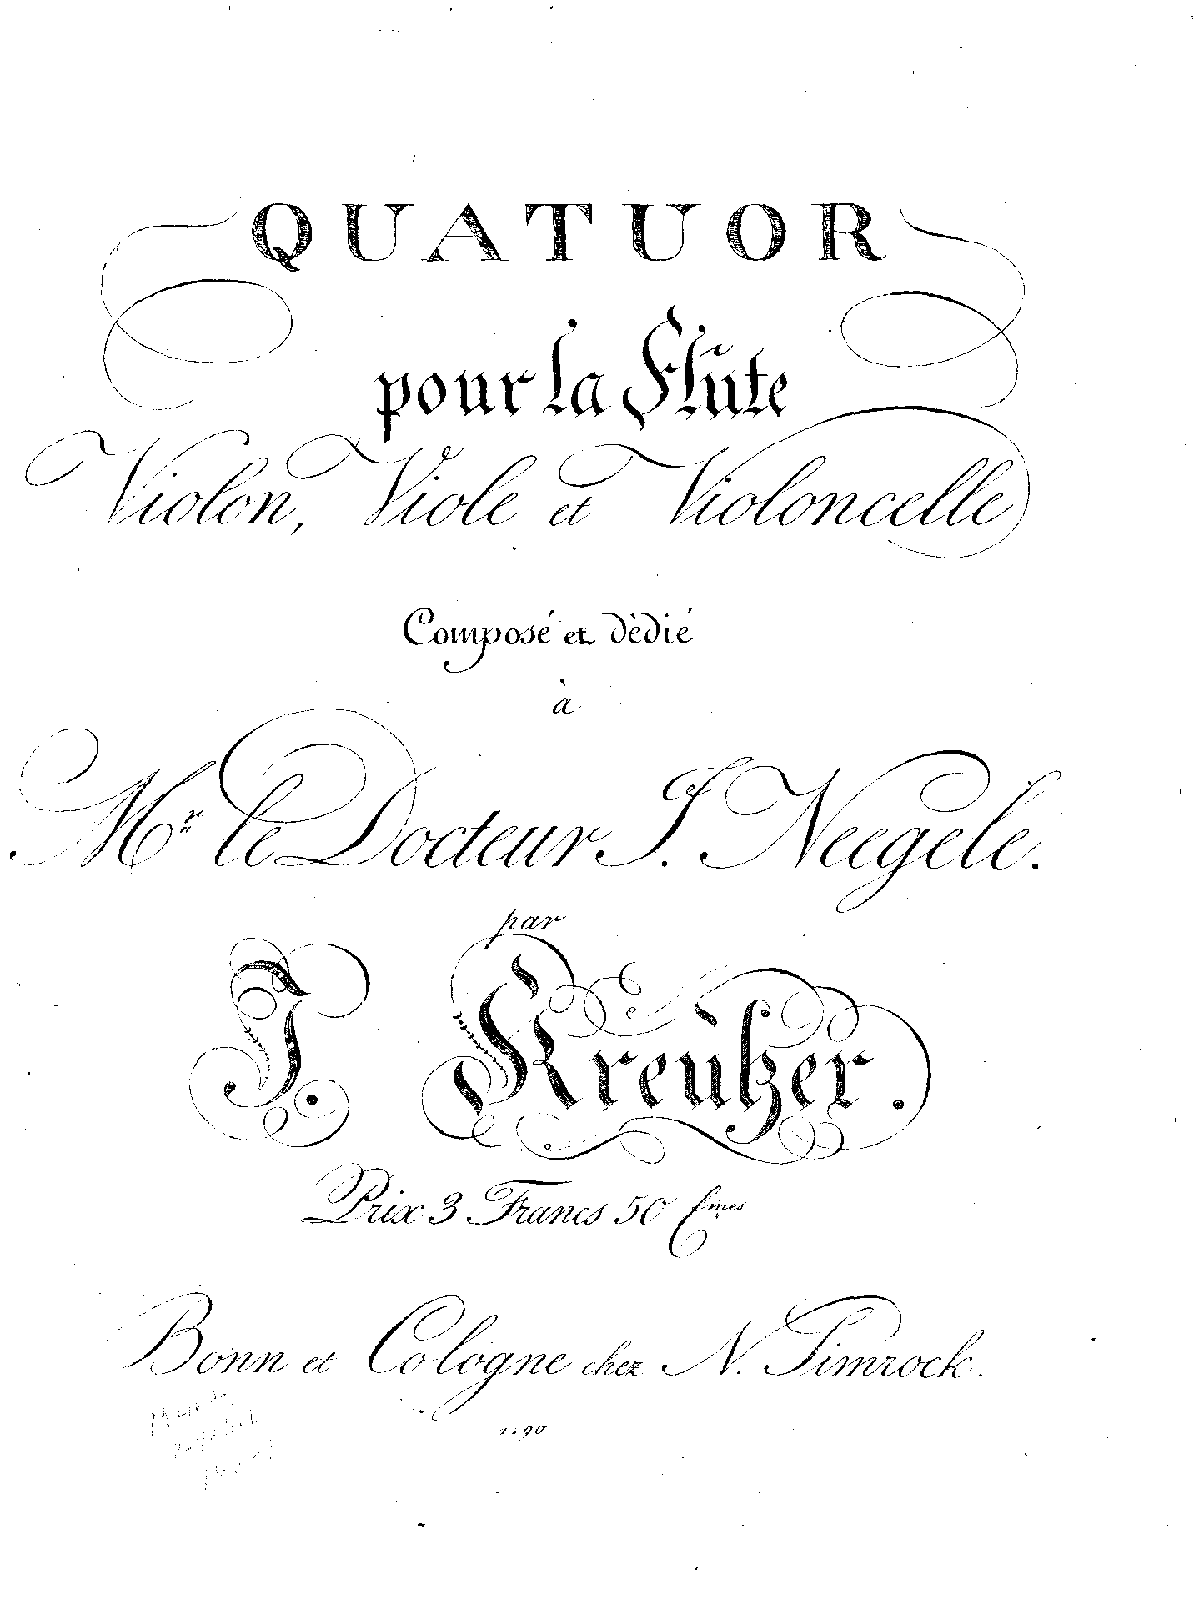 QUATUOR
pour la Flûte
Violon, Viole et Violoncelle
Composé et dédié
à
Mr le Docteur J. Neegele.
par
J. Kreutzer.
Prix 3 Francs 50 Cmes
Bonn et Cologne chez N. Simrock.